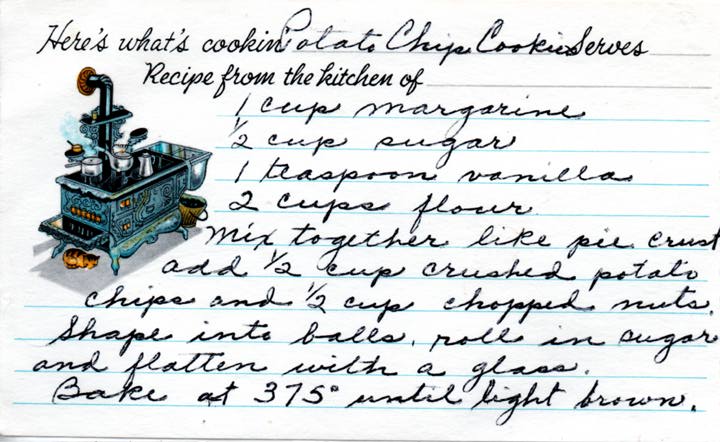 Here's what's cookin' Potato Chip Cookies Serves
Recipe from the kitchen of
1 cup margarine
½ cup sugar
1 teaspoon vanilla
2 cups flour
Mix together like pie crust
add ½ cup crushed potato
chips and ½ cup chopped nuts.
Shape into balls, roll in sugar
and flatten with a glass.
Bake at 375° until light brown.